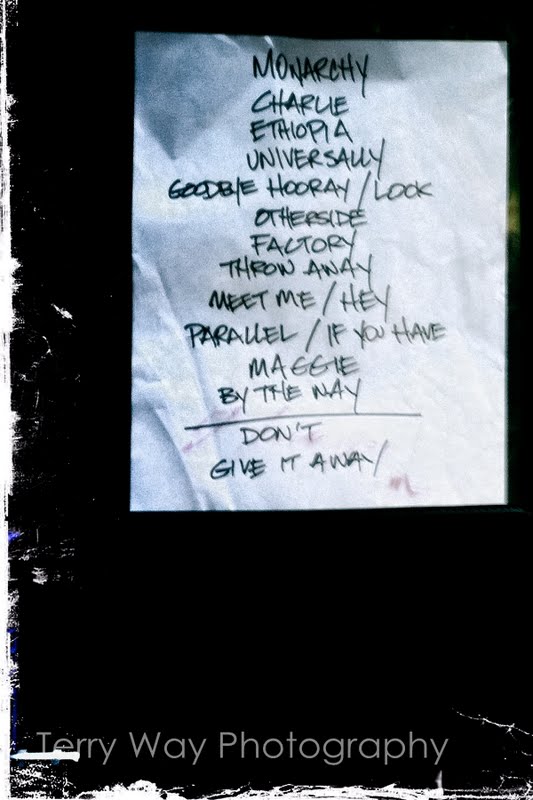 MONARCHY
CHARLIE
ETHIOPIA
UNIVERSALLY
GOODBYE HOORAY / LOOK
OTHERSIDE
FACTORY
THROW AWAY
MEET ME / HEY
PARALLEL / IF YOU HAVE
MAGGIE
BY THE WAY
DON'T
GIVE IT AWAY
Terry Way Photography